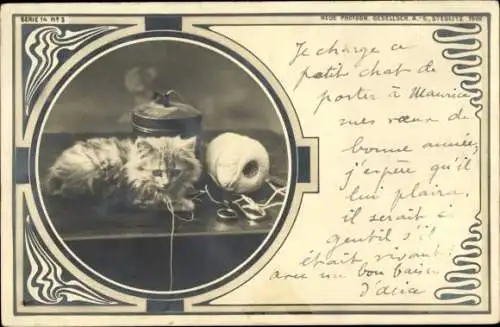 SERIE 14 Nº 3
NEUE PHOTOGR. GESELLSCH. A.-G., STEGLITZ. 1901
Je charge ce
petit chat de
porter à Maurice
mes vœux de
bonne année,
j'espère qu'il
lui plaira,
il serait si
gentil s'il
était vivant!
avec un bon baiser
d'